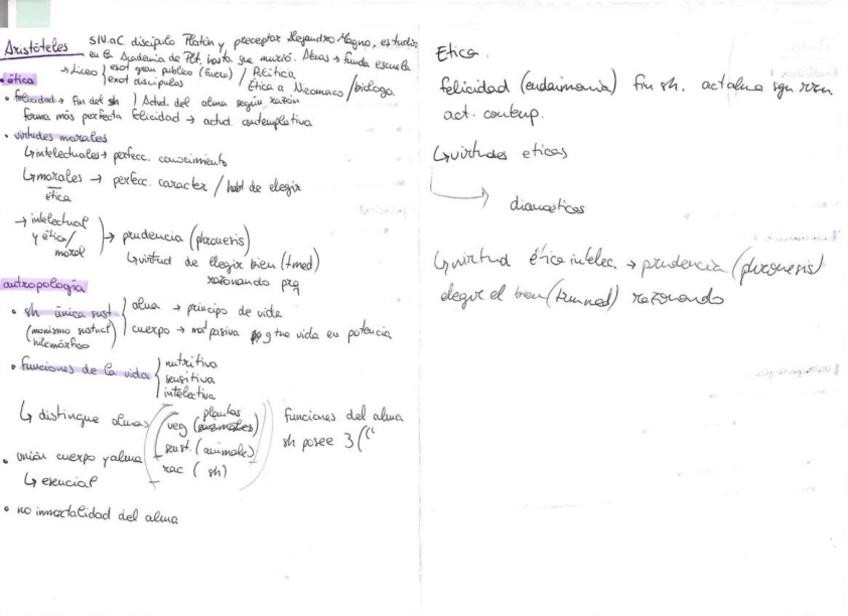 Aristóteles SIV.aC discípulo Platón y preceptor Alejandro Magno, estudió
en la Academia de Plt. hasta que murió. Atenas → funda escuela
→ Liceo exot gran público (fuera) / Política
esot discípulos / Ética a Nicomaco / biologo
· ética
• felicidad → Fin del sh / Actud. del alma según razón
forma más perfecta felicidad → actud contemplativa
• virtudes morales
↳ intelectuales → perfecc. conocimiento
↳ morales → perfecc. caracter / de elegir
ética
→ intelectual
y ética/
moral → prudencia (phronesis)
↳ virtud de elegir bien (tmed)
razonando prq
antropología
• sh única sust alma → principo de vida
(monismo sustncl cuerpo → mat pasiva q tne vida en potencia
hilemórfico)
• funciones de la vida nutritiva
sensitiva
intelectiva
↳ distingue almas veg (plantas)
sensit. (animales)
rac (sh)
funciones del alma
sh posee 3
• unión cuerpo y alma
↳ esencial
• no inmortalidad del alma
Etica.
felicidad (eudaimonia) fin sh. act alma sgn rzon
act. contemp.
↳ virtudes eticas
dianoeticas
↳ virtud ética intelec. → prudencia (phronesis)
elegir el bien (trmned) razonando